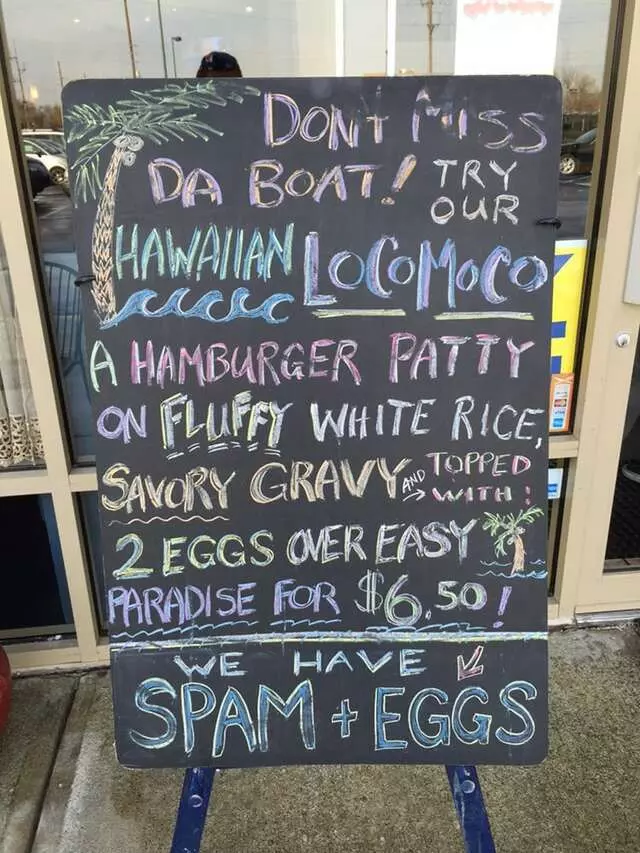 DONT MISS
DA BOAT! TRY OUR
HAWAIIAN LOCOMOCO
A HAMBURGER PATTY
ON FLUFFY WHITE RICE,
SAVORY GRAVY AND TOPPED WITH:
2 EGGS OVER EASY
PARADISE FOR $6.50!
WE HAVE
SPAM + EGGS